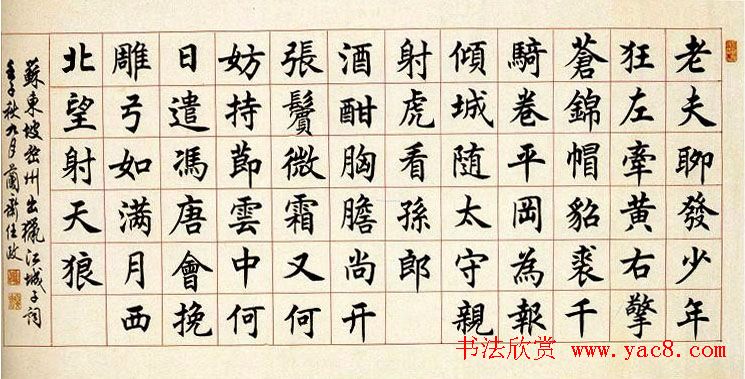 老夫聊發少年
狂左牽黃右擎
蒼錦帽貂裘千
騎卷平岡為報
傾城随太守親
射虎看孫郎
酒酣胸膽尚开
張鬢微霜又何
妨持節雲中何
日遣馮唐會挽
雕弓如滿月西
北望射天狼
蘇東坡密州出獵江城子詞
壬子秋九月蘭齋任政
书法欣赏 www.yac8.com